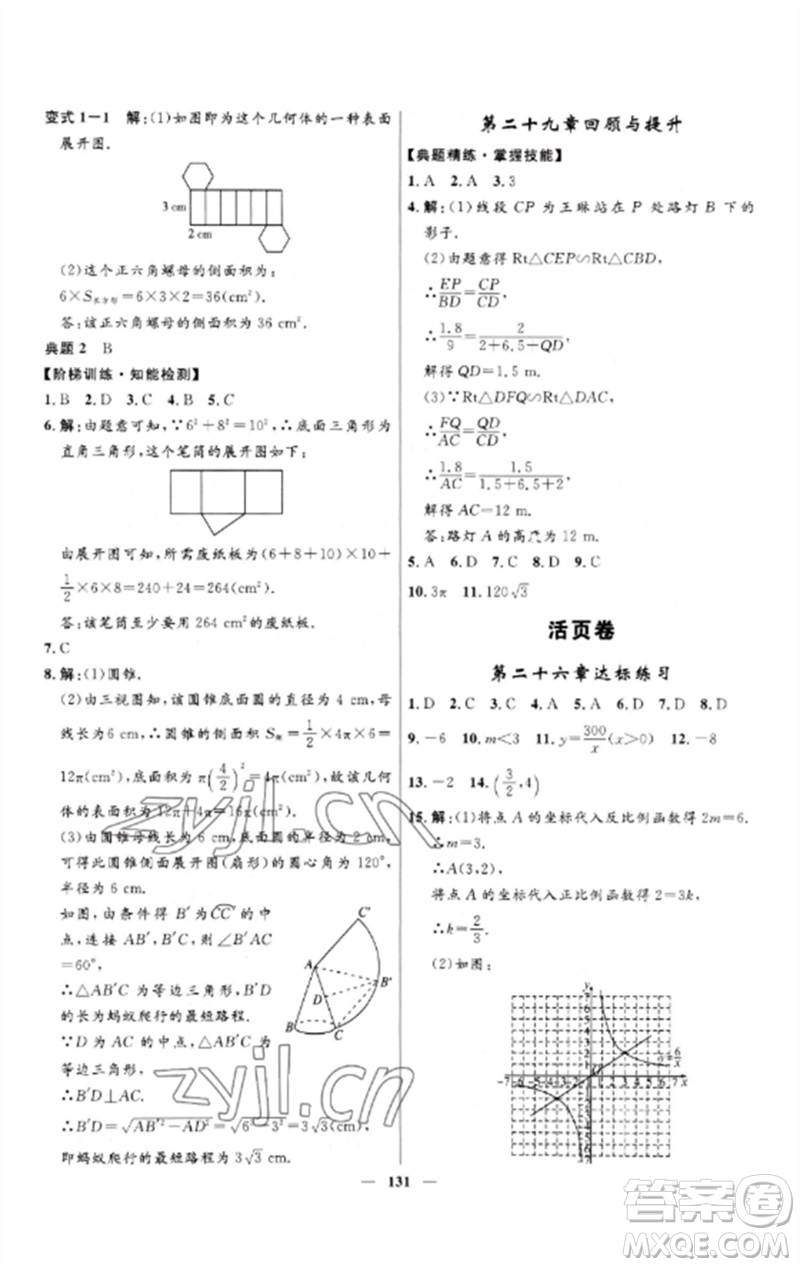 变式1-1 解:(1)如图即为这个几何体的一种表面
展开图.
3 cm
2 cm
(2)这个正六角螺母的侧面积为:
6×S长方形=6×3×2=36(cm²).
答:该正六角螺母的侧面积为 36 cm².
典题2 B
【阶梯训练·知能检测】
1.B 2.D 3.C 4.B 5.C
6.解:由题意可知,∵6²+8²=10²,∴底面三角形为
直角三角形,这个笔筒的展开图如下:
由展开图可知,所需废纸板为(6+8+10)×10+
1/2×6×8=240+24=264(cm²).
答:该笔筒至少要用 264 cm²的废纸板.
7.C
8.解:(1)圆锥.
(2)由三视图知,该圆锥底面圆的直径为 4 cm,母
线长为6 cm,∴圆锥的侧面积 S侧=1/2×4π×6=
12π(cm²),底面积为 π(4/2)²=4π(cm²),故该几何
体的表面积为12π+4π=16π(cm²).
(3)由圆锥母线长为6 cm,底面圆的直径为4 cm,
可得此圆锥侧面展开图(扇形)的圆心角为 120°,
半径为 6 cm.
如图,由条件得 B′为CC′的中
点,连接 AB′,B′C,则∠B′AC
=60°,
∴△AB′C为等边三角形,B′D
的长为蚂蚁爬行的最短路程.
∵D 为 AC 的中点,△AB′C 为
等边三角形,
∴B′D⊥AC.
∴B′D=√AB′²-AD²=√6²-3²=3√3(cm),
即蚂蚁爬行的最短路程为 3√3 cm.
C′
A
B′
D
B
C
第二十九章回顾与提升
【典题精练·掌握技能】
1.A 2.A 3.3
4.解:(1)线段 CP 为王琳站在 P 处路灯 B 下的
影子.
(2)由题意得 Rt△CEP∽Rt△CBD,
∴EP/BD=CP/CD,
∴1.8/9=2/(2+6.5+QD),
解得 QD=1.5 m.
(3)∵Rt△DFQ∽Rt△DAC,
∴FQ/AC=QD/CD,
∴1.8/AC=1.5/(1.5+6.5+2),
解得 AC=12 m.
答:路灯 A 的高度为 12 m.
5.A 6.D 7.C 8.D 9.C
10.3π 11.120√3
活页卷
第二十六章达标练习
1.D 2.C 3.C 4.D 5.A 6.D 7.D 8.D
9.-6 10.m<3 11.y=300/x(x>0) 12.-8
13.-2 14.(3/2,4)
15.解:(1)将点 A 的坐标代入反比例函数得 2m=6.
∴m=3.
∴A(3,2),
将点 A 的坐标代入正比例函数得 2=3k,
∴k=2/3.
(2)如图:
y
y=6/x
-7-6-5-4-3-2-1 1 2 3 4 5 6 7 x
131
zyjl.cn
zyjl.cn
答案卷
MXQE.COM